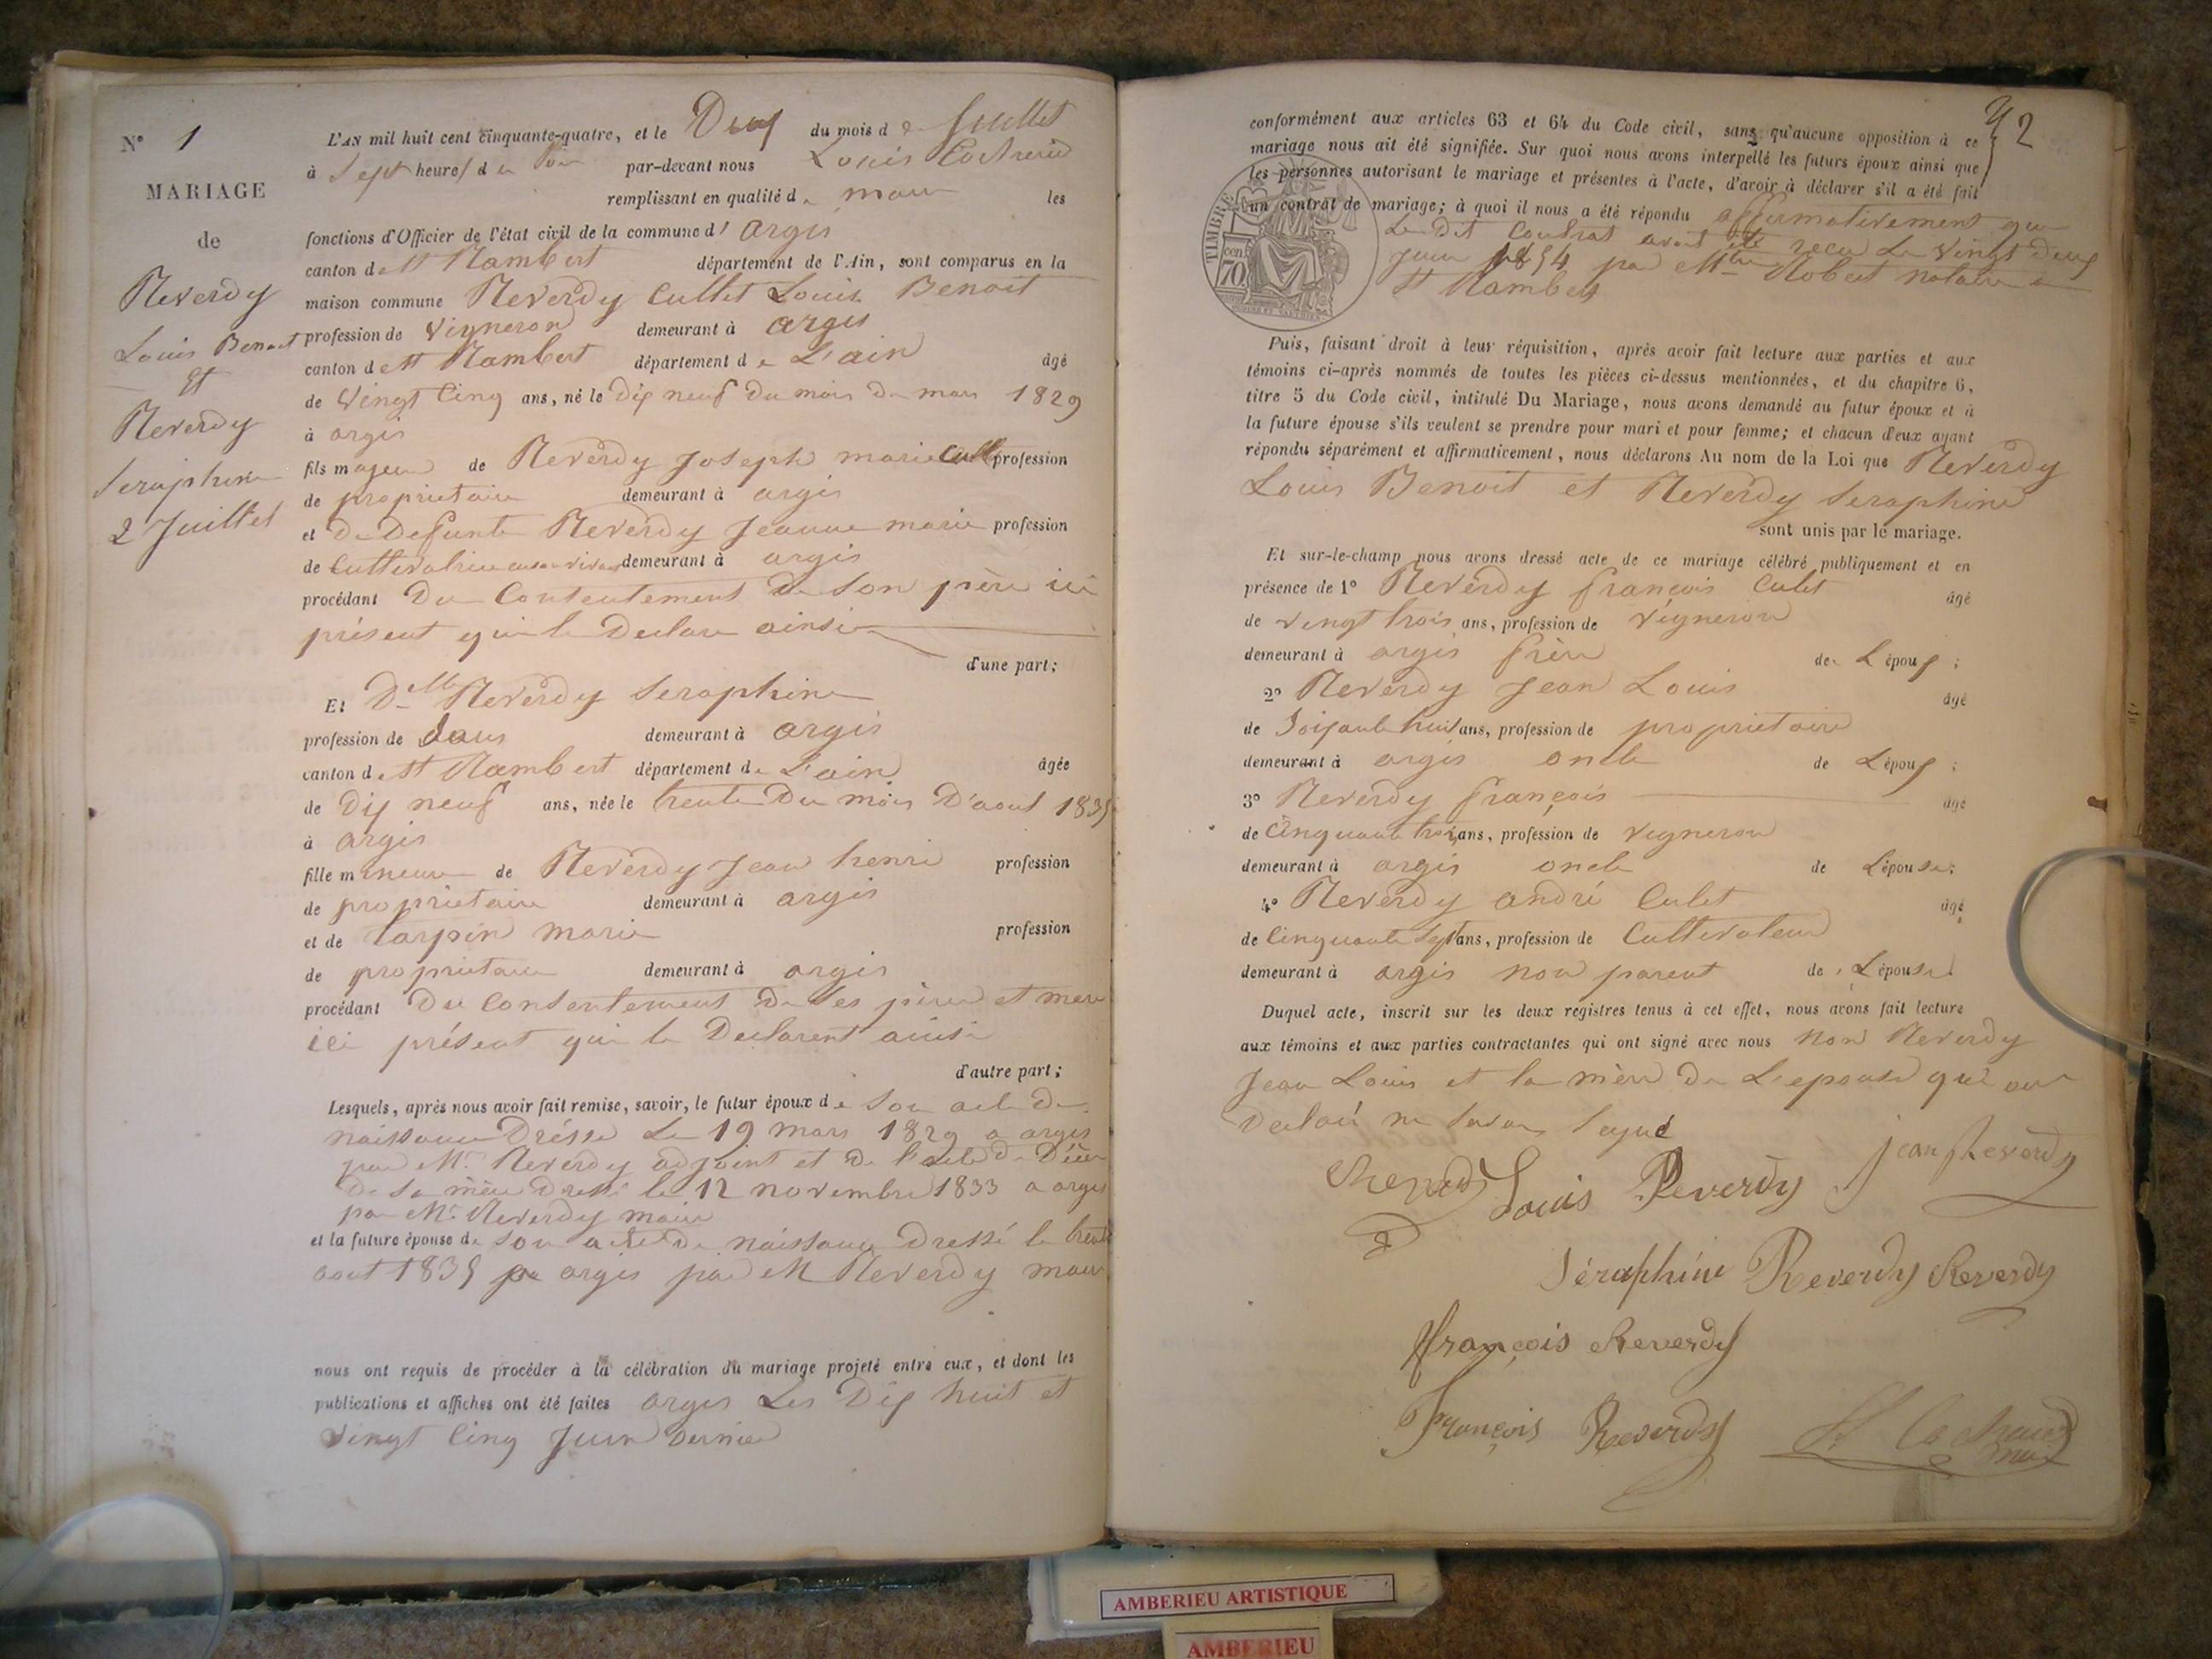 N° 1
MARIAGE
de
Reverdy
Louis Benoit
Et
Reverdy
Seraphine
2 Juillet
L'AN mil huit cent cinquante-quatre, et le Deux du mois de Juillet
à Sept heures du Soir par-devant nous Louis
remplissant en qualité de maire les
fonctions d'Officier de l'état civil de la commune d'argis
canton de St Rambert département de l'Ain, sont comparus en la
maison commune Reverdy Cullet Louis Benoit
profession de Vigneron demeurant à argis
canton de St Rambert département de L'ain âgé
de Vingt Cinq ans, né le Dix neuf du mois de mars 1829
à argis
fils majeur de Reverdy Joseph marie Cullet profession
de proprietaire demeurant à argis
et De Defunte Reverdy Jeanne marie profession
de Cultivatrice demeurant à argis
procédant Du Consentement de Son père ici
présent qui le Declare ainsi
d'une part;
Et Dlle Reverdy Seraphine
profession de Sans demeurant à argis
canton de St Rambert département de L'ain âgée
de Dix neuf ans, née le trente Du mois D'aout 1835
à argis
fille mineure de Reverdy Jean henri profession
de proprietaire demeurant à argis
et de Carpin marie profession
de proprietaire demeurant à argis
procédant Du Consentement De Ses père et mere
ici présent qui le Declarent ainsi
d'autre part;
Lesquels, après nous avoir fait remise, savoir, le futur époux de Son acte De
naissance Dréssé Le 19 mars 1829 a argis
par Mr. Reverdy adjoint et De l'acte De Décé
De Sa mère Dressé le 12 novembre 1833 a argis
par Mr. Reverdy maire
et la future épouse de Son acte De naissance Dressé le trente
aout 1835 a argis par M Reverdy maire
nous ont requis de procéder à la célébration du mariage projeté entre eux, et dont les
publications et affiches ont été faites argis Les Dix huit et
Vingt Cinq Juin Dernier
42
conformément aux articles 63 et 64 du Code civil, sans qu'aucune opposition à ce
mariage nous ait été signifiée. Sur quoi nous avons interpellé les futurs époux ainsi que
les personnes autorisant le mariage et présentes à l'acte, d'avoir à déclarer s'il a été fait
un contrat de mariage; à quoi il nous a été répondu affirmativement que
Le Dit Contrat avait été recu Le Vingt Deux
Juin 1854 par Mtre Robert notaire a
St Rambert
TIMBRE
70 cen
Puis, faisant droit à leur réquisition, après avoir fait lecture aux parties et aux
témoins ci-après nommés de toutes les pièces ci-dessus mentionnées, et du chapitre 6,
titre 5 du Code civil, intitulé Du Mariage, nous avons demandé au futur époux et à
la future épouse s'ils veulent se prendre pour mari et pour femme; et chacun d'eux ayant
répondu séparément et affirmativement, nous déclarons Au nom de la Loi que Reverdy
Louis Benoit et Reverdy Seraphine
sont unis par le mariage.
Et sur-le-champ nous avons dressé acte de ce mariage célébré publiquement et en
présence de 1° Reverdy françois Culet âgé
de vingt trois ans, profession de Vigneron
demeurant à argis frère de L'époux;
2° Reverdy Jean Louis âgé
de Soixante huit ans, profession de proprietaire
demeurant à argis oncle de L'époux;
3° Reverdy françois âgé
de Cinquante trois ans, profession de vigneron
demeurant à argis oncle de L'épouse;
4° Reverdy andré Culet âgé
de Cinquante Sept ans, profession de Cultivateur
demeurant à argis non parent de L'épouse.
Duquel acte, inscrit sur les deux registres tenus à cet effet, nous avons fait lecture
aux témoins et aux parties contractantes qui ont signé avec nous Non Reverdy
Jean Louis et la mère De L'epouse qui ont
Declaré ne Savoir Signé
Louis Reverdy Jean Reverdy
Séraphine Reverdy Reverdy
françois Reverdy
François Reverdy
AMBERIEU ARTISTIQUE
AMBERIEU